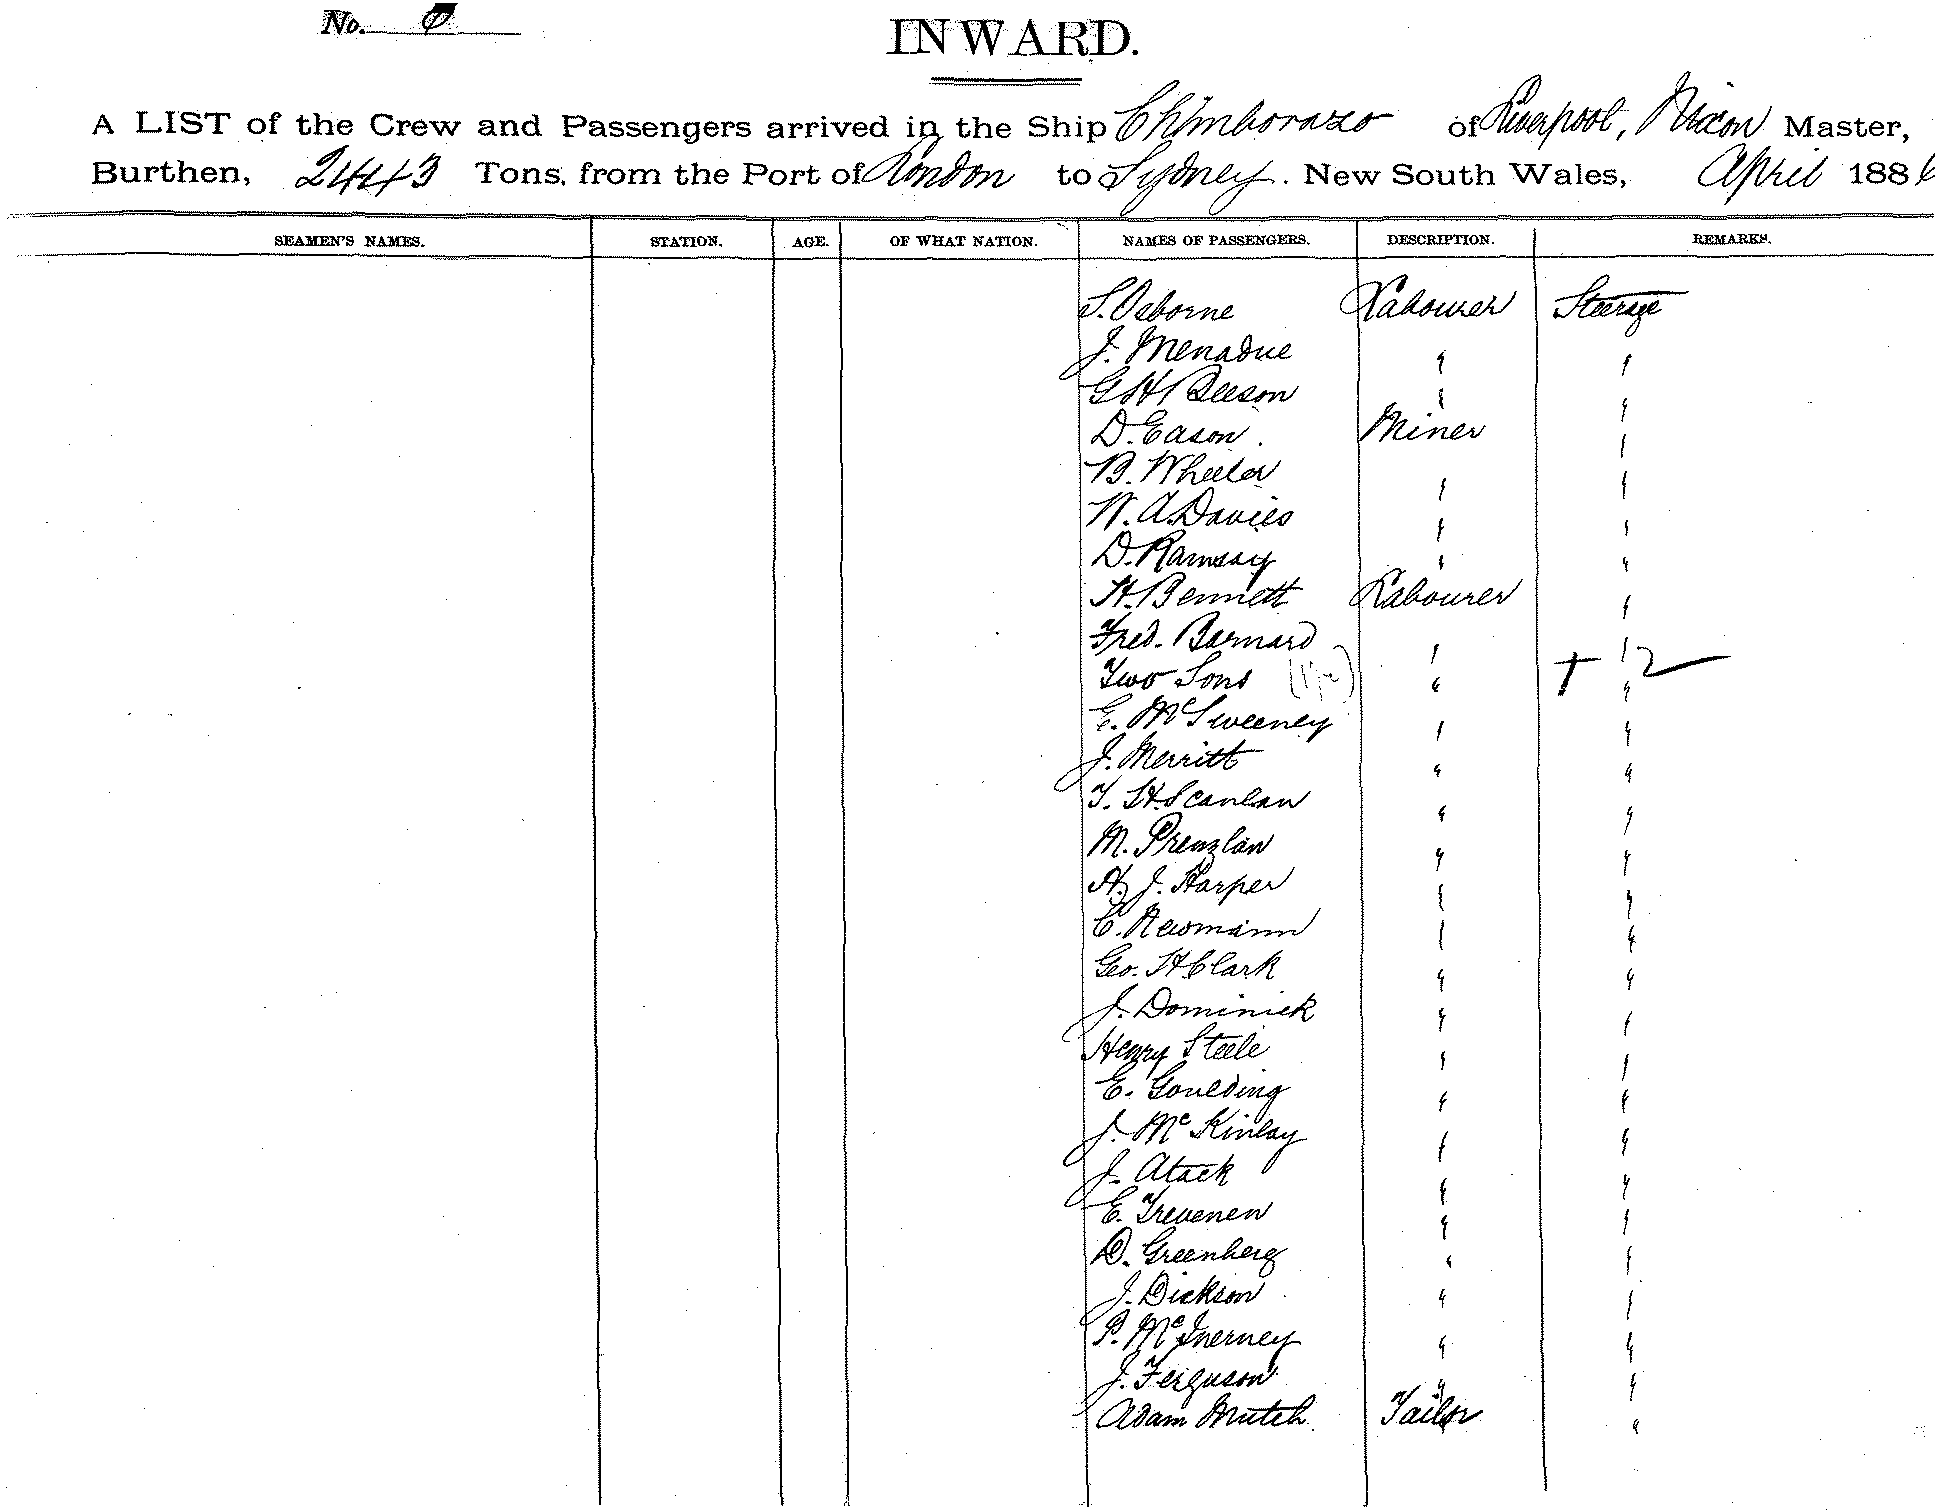 No.
INWARD.
A LIST of the Crew and Passengers arrived in the Ship Chimborazo of Liverpool, Nixon Master,
Burthen, 2443 Tons, from the Port of London to Sydney. New South Wales, April 1886
SEAMEN'S NAMES. STATION. AGE. OF WHAT NATION. NAMES OF PASSENGERS. DESCRIPTION. REMARKS.
S. Osborne Labourer Steerage
J. Menadue " "
G H Beeson " "
D. Eason. Miner "
B. Wheeler " "
W. A. Davies " "
D. Ramsay " "
H. Bennett Labourer "
Fred. Barnard " "
Two Sons " + 2 "
E. McSweeney " "
J. Merritt " "
T. H. Scanlan " "
M. Prenzlau " "
H. J. Harper " "
C. Newmann " "
Geo. H Clark " "
J. Dominick " "
Henry Steele " "
E. Goulding " "
J. McKinlay " "
J. Atack " "
E. Trevenen " "
D. Greenberg " "
J. Dickson " "
P. McInerney " "
J. Ferguson " "
Adam Mutch. Tailor "